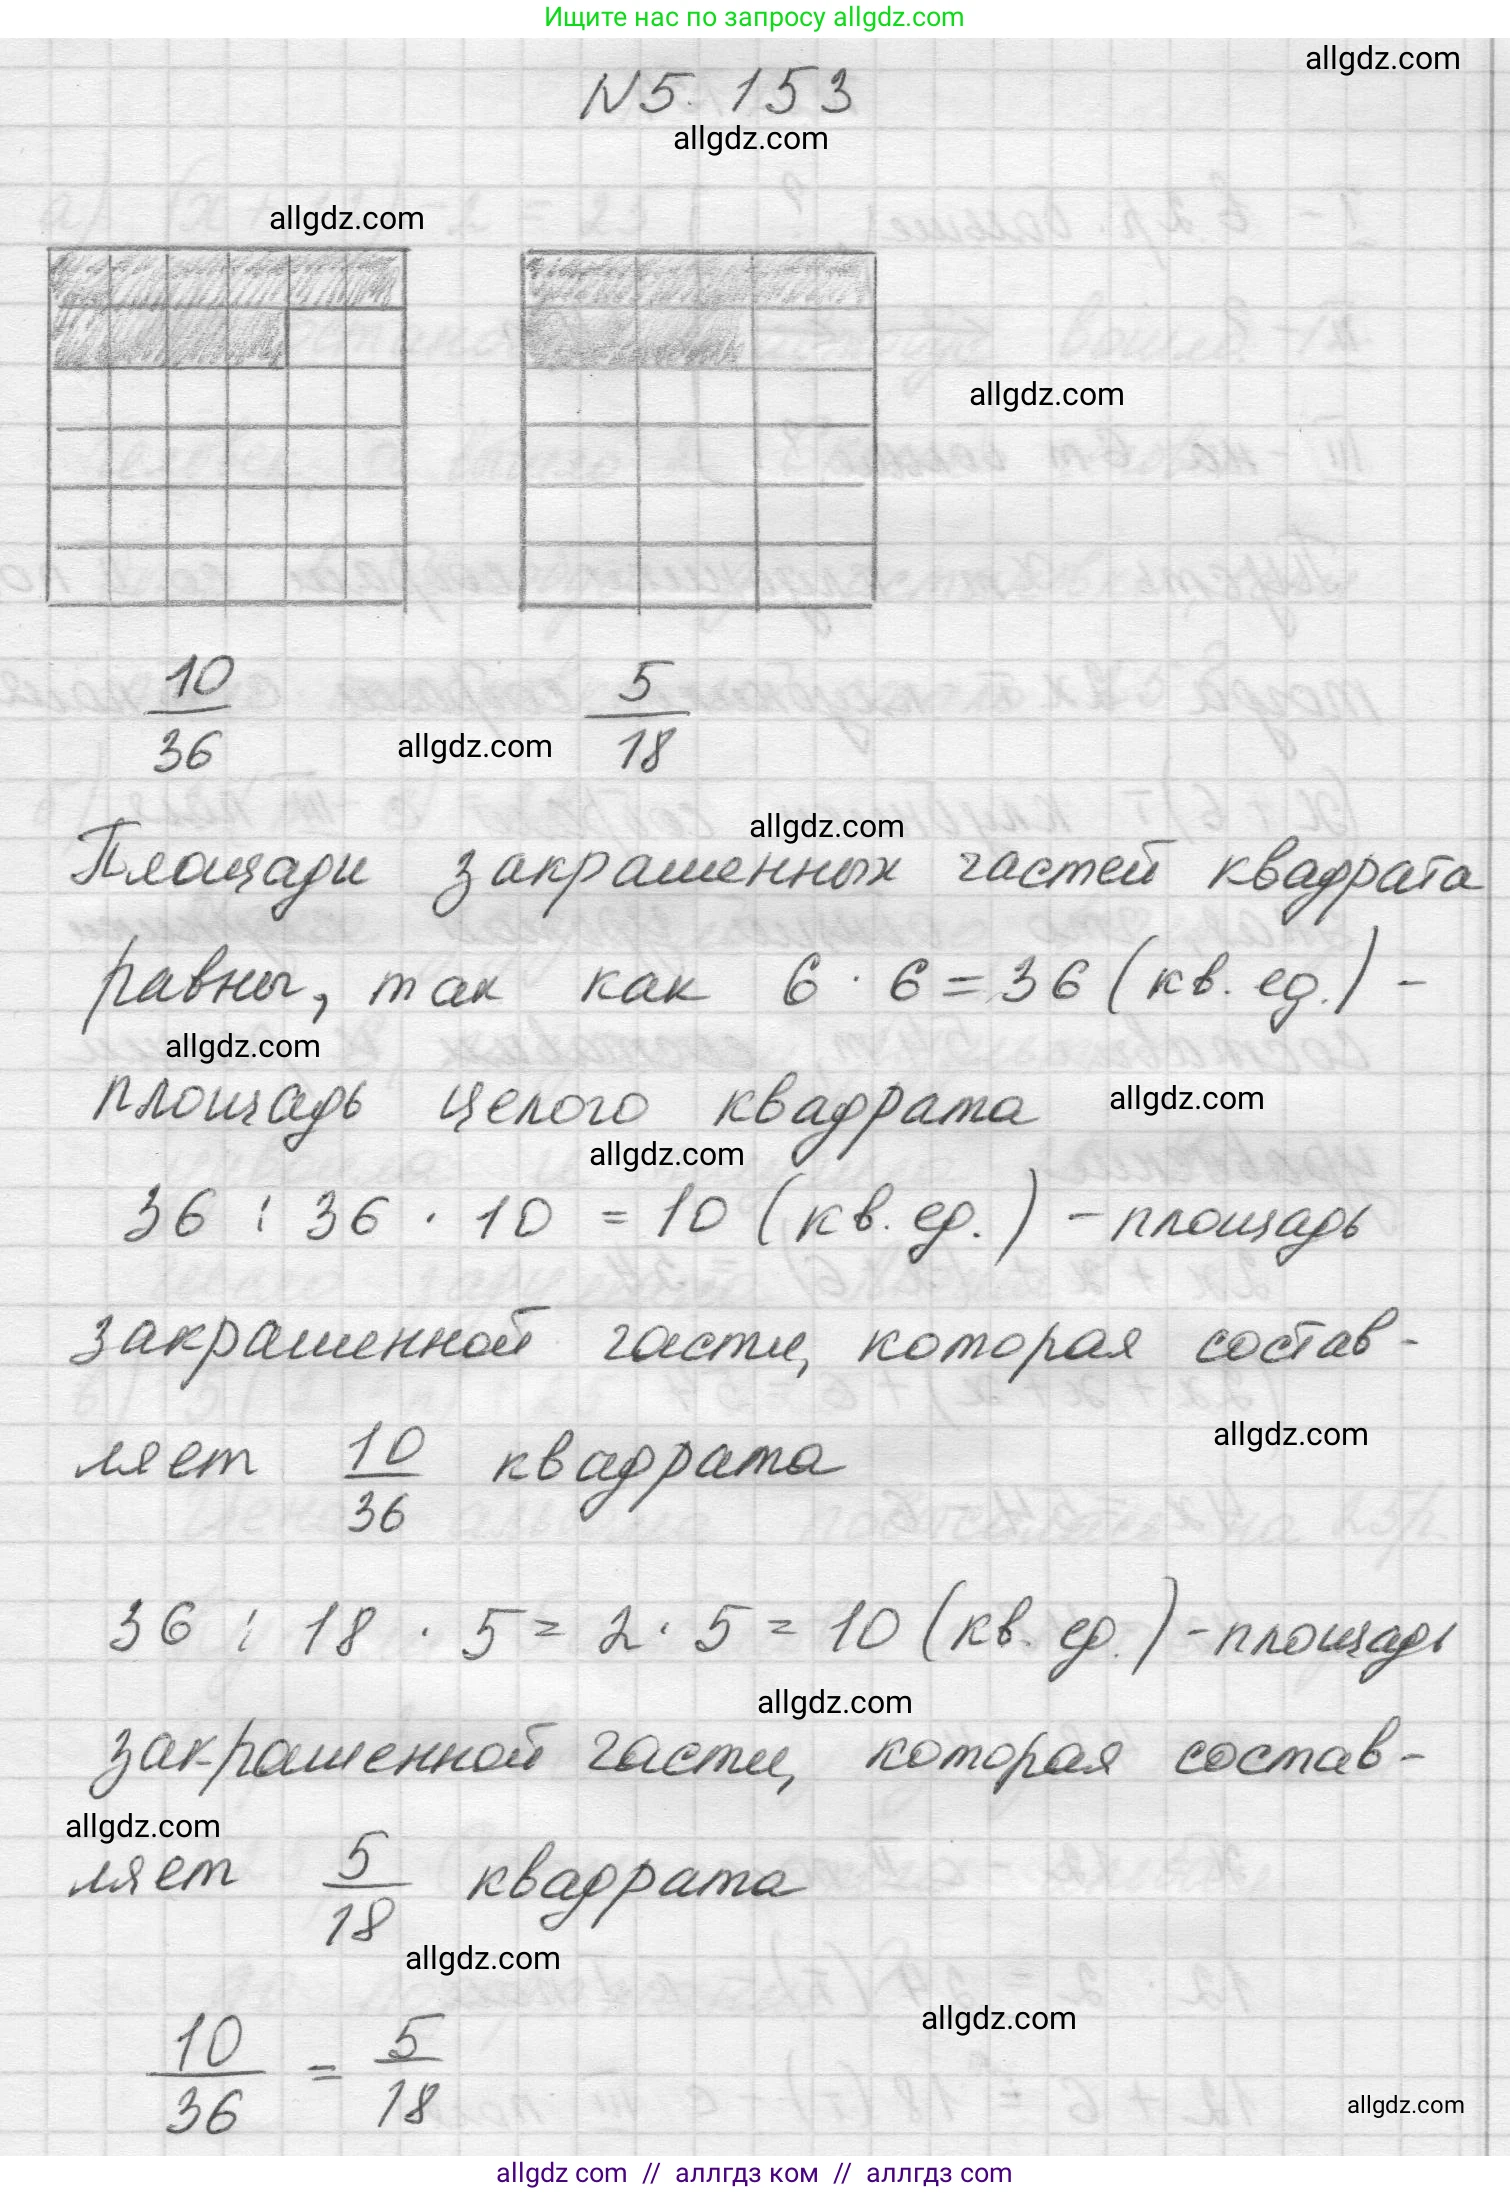 Ищите нас по запросу allgdz.com
allgdz.com
N5.153
allgdz.com
allgdz.com
allgdz.com
10/36 5/18
allgdz.com
allgdz.com
Площади закрашенных частей квадрата
равны, так как 6 · 6 = 36 (кв. ед.) -
allgdz.com
площадь целого квадрата
allgdz.com
allgdz.com
36 : 36 · 10 = 10 (кв. ед.) - площадь
закрашенной части, которая состав-
ляет 10/36 квадрата
allgdz.com
36 : 18 · 5 = 2 · 5 = 10 (кв. ед.) - площадь
allgdz.com
закрашенной части, которая состав-
allgdz.com
ляет 5/18 квадрата
allgdz.com
allgdz.com
10/36 = 5/18
allgdz.com
allgdz com // аллгдз ком // аллгдз com